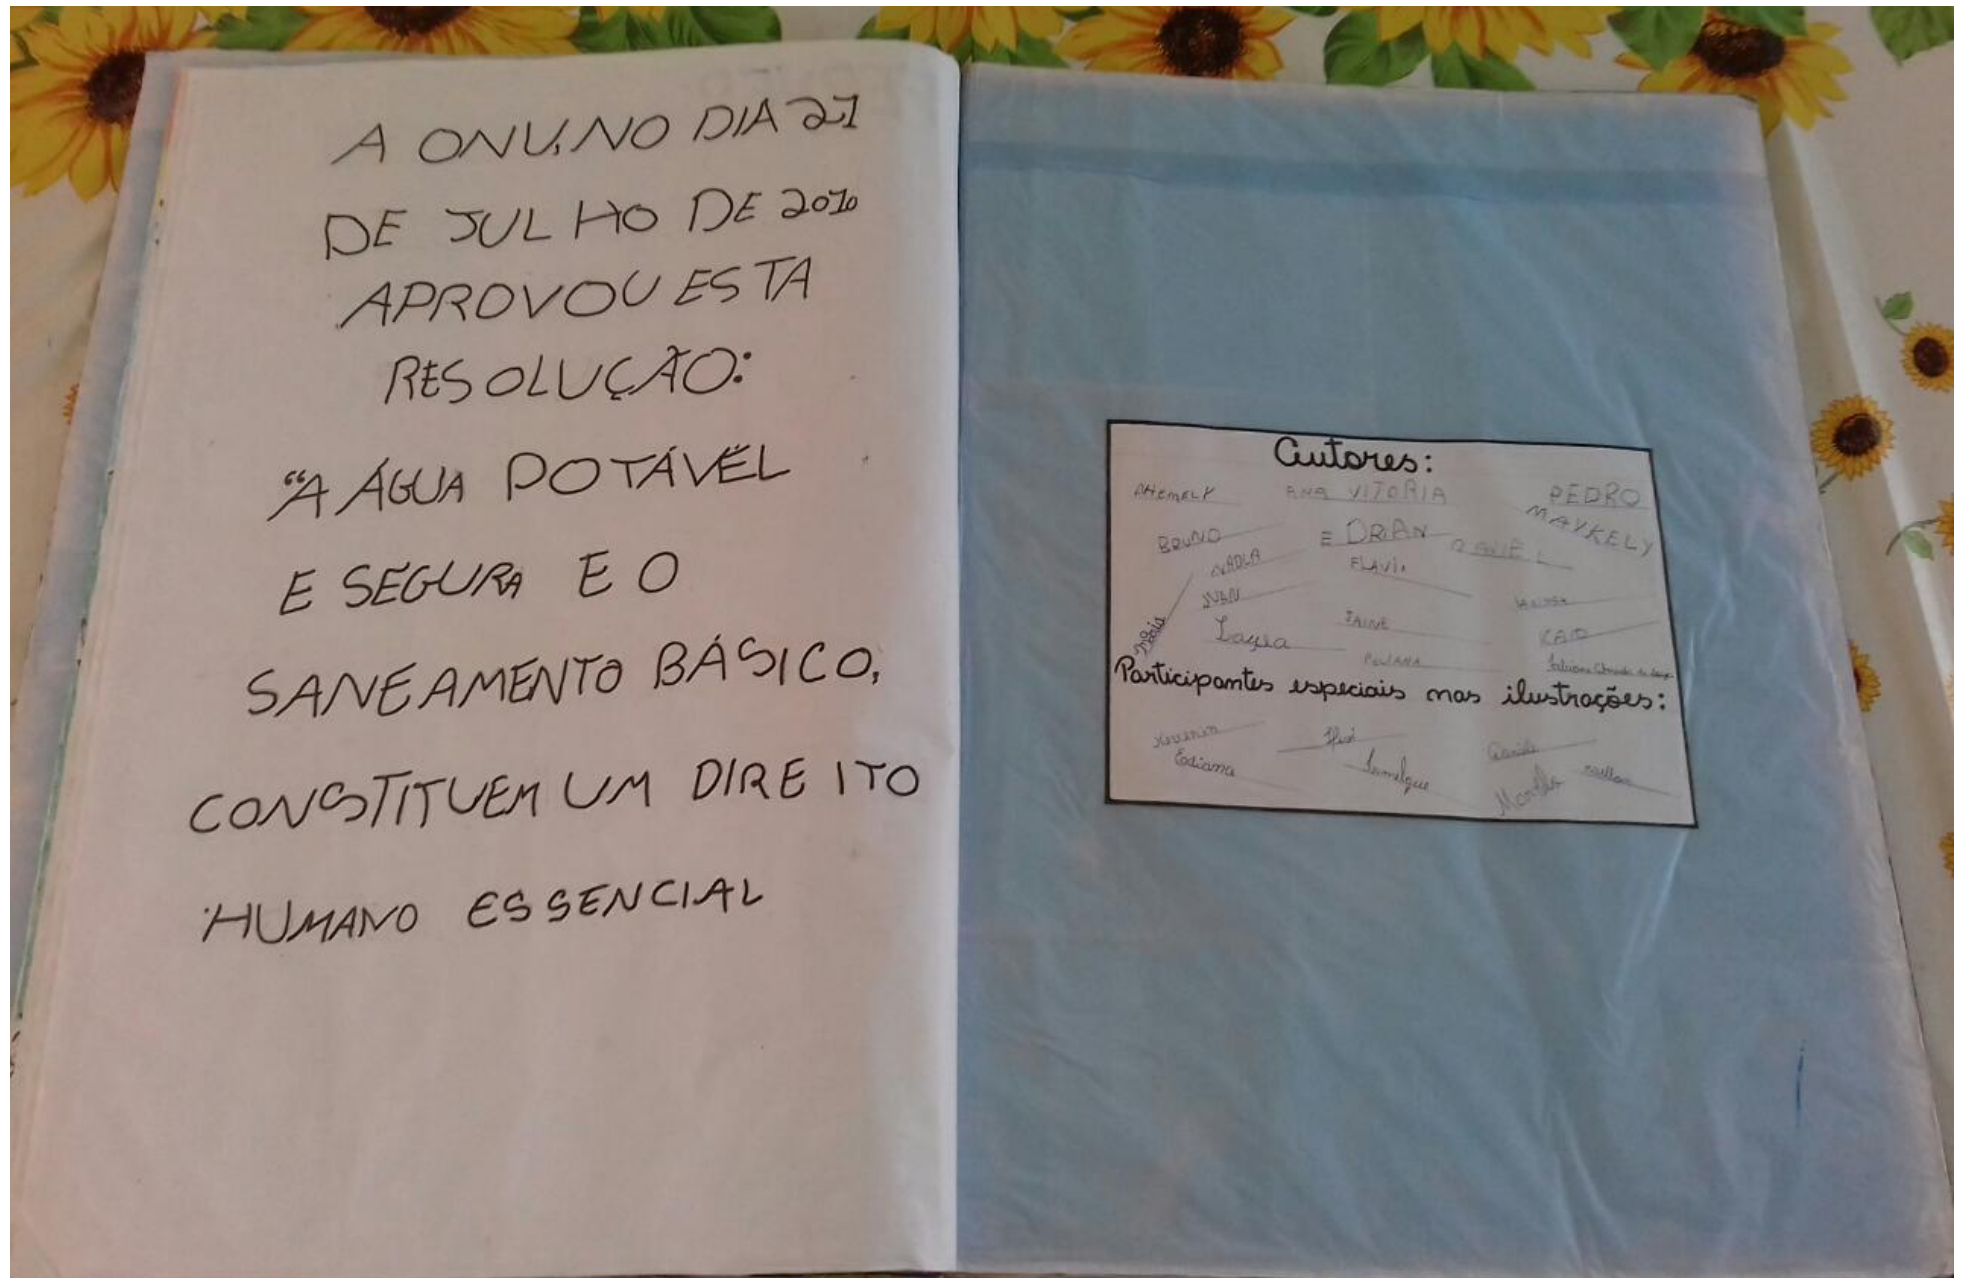 A ONU, NO DIA 21
DE JULHO DE 2010
APROVOU ESTA
RESOLUÇÃO:
"A ÁGUA POTÁVEL
E SEGURA E O
SANEAMENTO BÁSICO,
CONSTITUEM UM DIREITO
HUMANO ESSENCIAL
Autores:
ANA VITORIA PEDRO
MAYKELY
BRUNO EDRIAN
NADLA FLAVIA
JAINE KAIO
Layla
POLIANA
Participantes especiais nas ilustrações:
Ediana